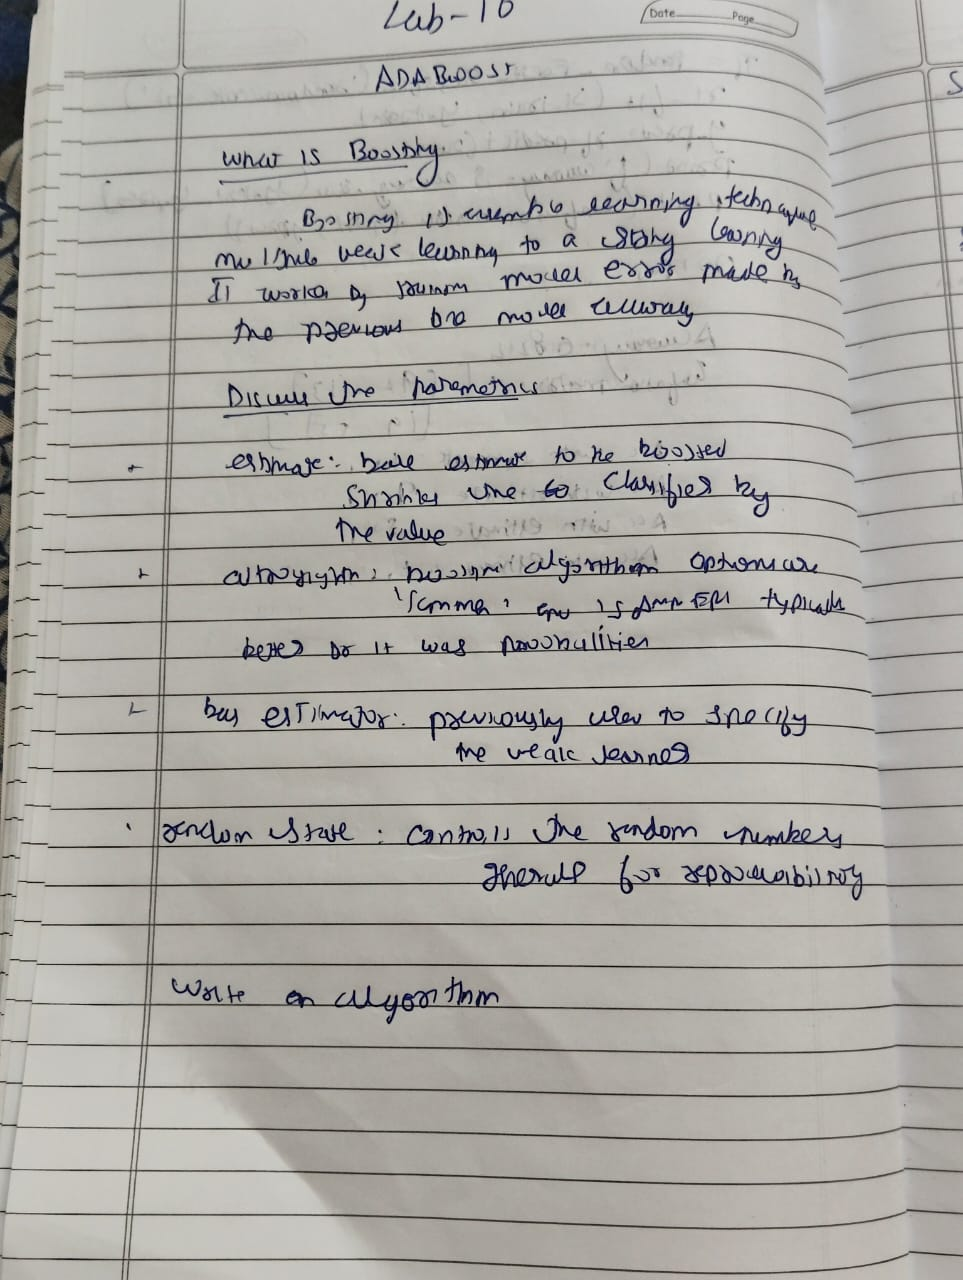 Lab-10
Date Page
ADABOOST
What is Boosting.
Boosting is ensemble learning technique
multiple weak learning to a strong learning
It works by model error made by
the previous model
Discuss the parameters
estimate: base estimate to be boosted
Shrinks the to classifier by
the value
algorithm: algorithm options are
typically
better it was probabilities
bas estimator: previously used to specify
the weak learner
random state: controlls the random numbers
for reproducibility
Write an algorithm